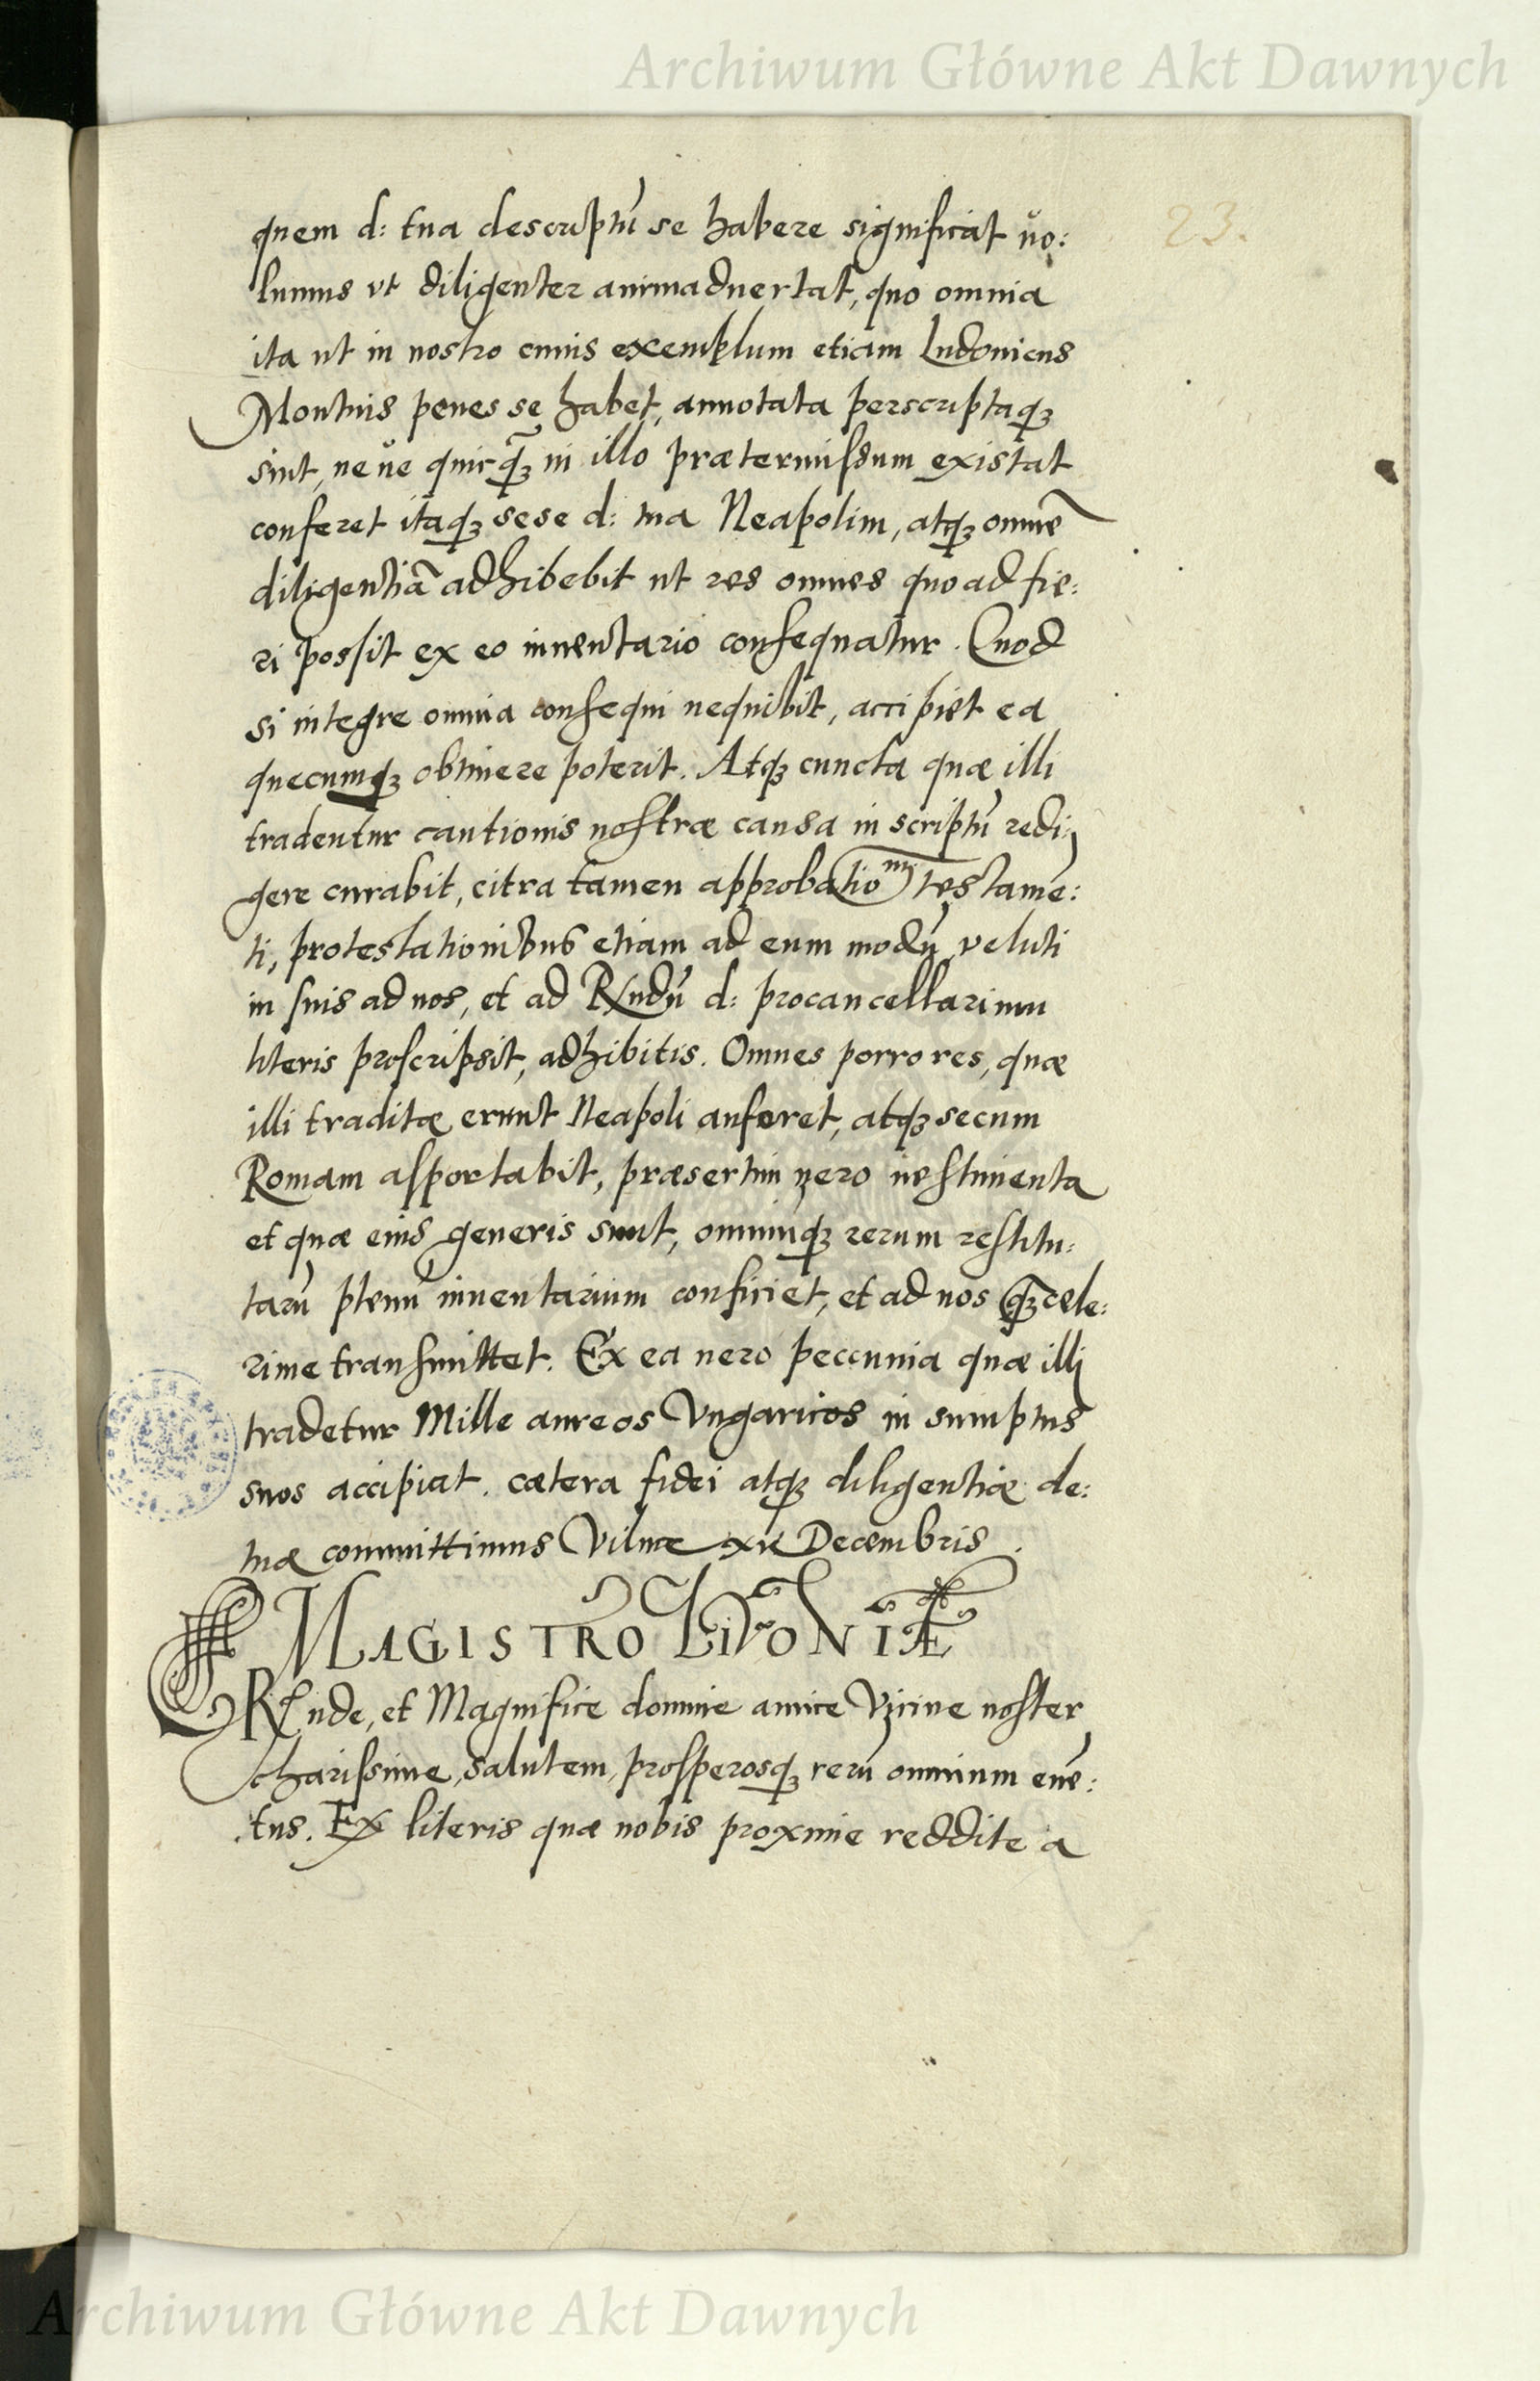 Archiwum Główne Akt Dawnych
23.
quem d: tua descriptũ se habere significat vo:
lumus vt diligenter animaduertat, quo omnia
ita ut in nostro cuius exemplum etiam Ludouicus
Montius penes se habet, annotata perscriptaqꝫ
sint, neue quicq̃ꝫ in illo prætermissum existat
conferet itaqꝫ sese d: tua Neapolim, atqꝫ omnẽ
diligentiã adhibebit ut res omnes quoad fie:
ri possit ex eo inuentario consequatur. Quod
si integre omnia consequi nequibit, accipiet ea
quecumqꝫ obtinere poterit. Atqꝫ cuncta quæ illi
tradentur cautionis nostræ causa in scriptũ redi:
gere curabit, citra tamen approbationẽ testamẽ:
ti, protestationibus etiam ad eum modũ veluti
in suis ad nos, et ad Rñdũ d: procancellarium
literis proscripsit, adhibitis. Omnes porro res, quæ
illi traditæ erunt Neapoli auferet, atqꝫ secum
Romam asportabit, præsertim vero uestimenta
et quæ eius generis sunt, omniũqꝫ rerum restitu:
tarũ plenũ inuentarium conficiet, et ad nos q̃ꝫ cele:
rime transmittet. Ex ea uero peccunia quæ illi
tradetur Mille aureos Vngaricos in sumptus
suos accipiat. cætera fidei atqꝫ diligentiæ de:
tuæ committimus Vilnæ Decembris.
MAGISTRO LIVONIÆ
Rnde, et Magnifice domine amice Vicine noster
charissime, salutem, prosperosqꝫ rerũ omnium euẽ:
tus. Ex literis quæ nobis proxime reddite a
Archiwum Główne Akt Dawnych